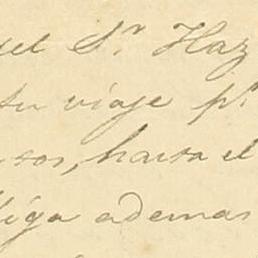 el Sr Haz
su viaje pr
sos, hasta el
liga ademas